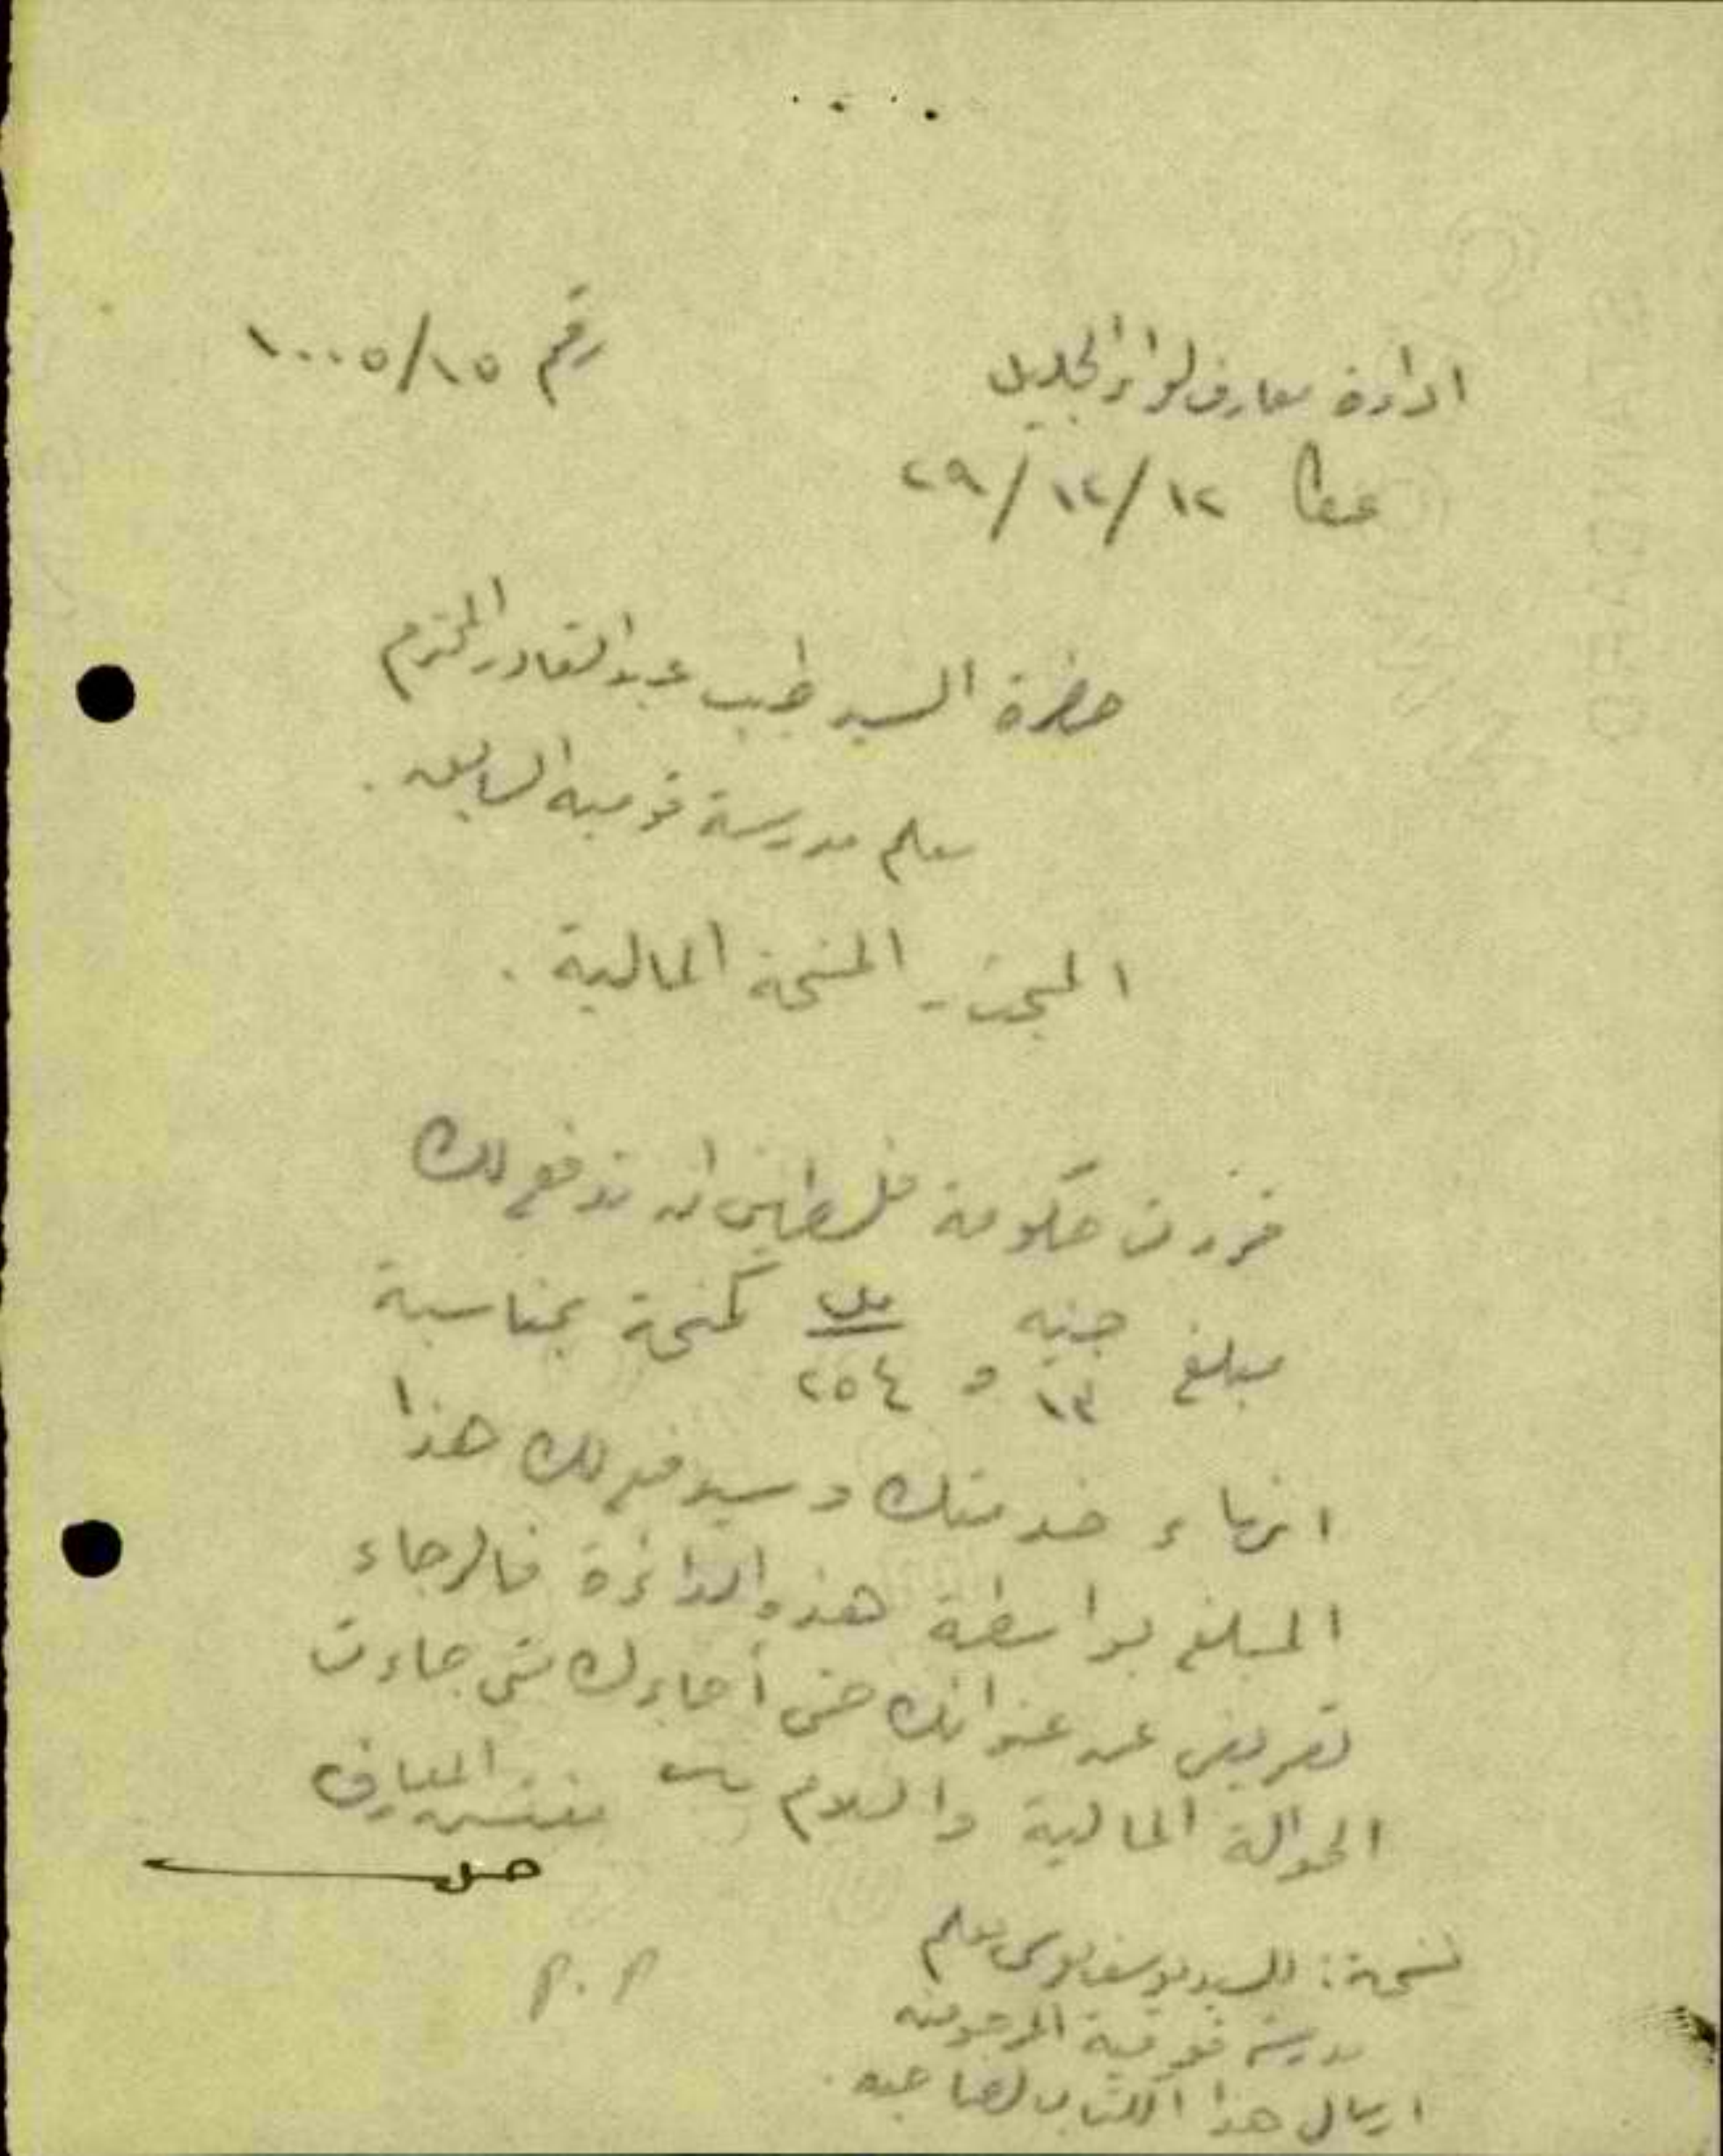 رقم ١٠٠٠٥/١٥
ادارة معارف لواء الجليل
عكا ١٢/١٢/٢٩
حضرة السيد طيب عبد القادر المحترم
معلم مدرسة قومية السابق .
المبحث - المنحة المالية .
قررت حكومة فلسطين ان تدفع لك
مبلغ جنيه ١٣ و مل ٢٥٤ كمنحة بمناسبة
انهاء خدمتك وسيدفع لك هذا
المبلغ بواسطة هذه الدائرة فالرجاء
تعريفي عن عنوانك حتى متى جاءت
الحوالة المالية والسلام
مفتش المعارف
نسخة : للسيد يوسف معلم
مدرسة قومية
ارسال هذا الكتاب لصاحبه .